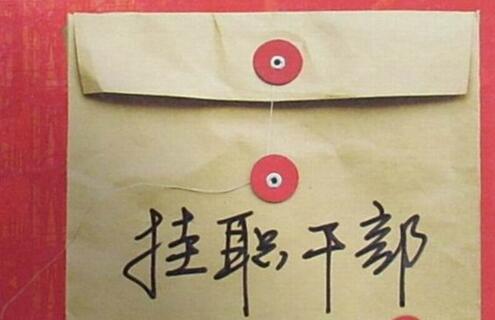 挂职干部